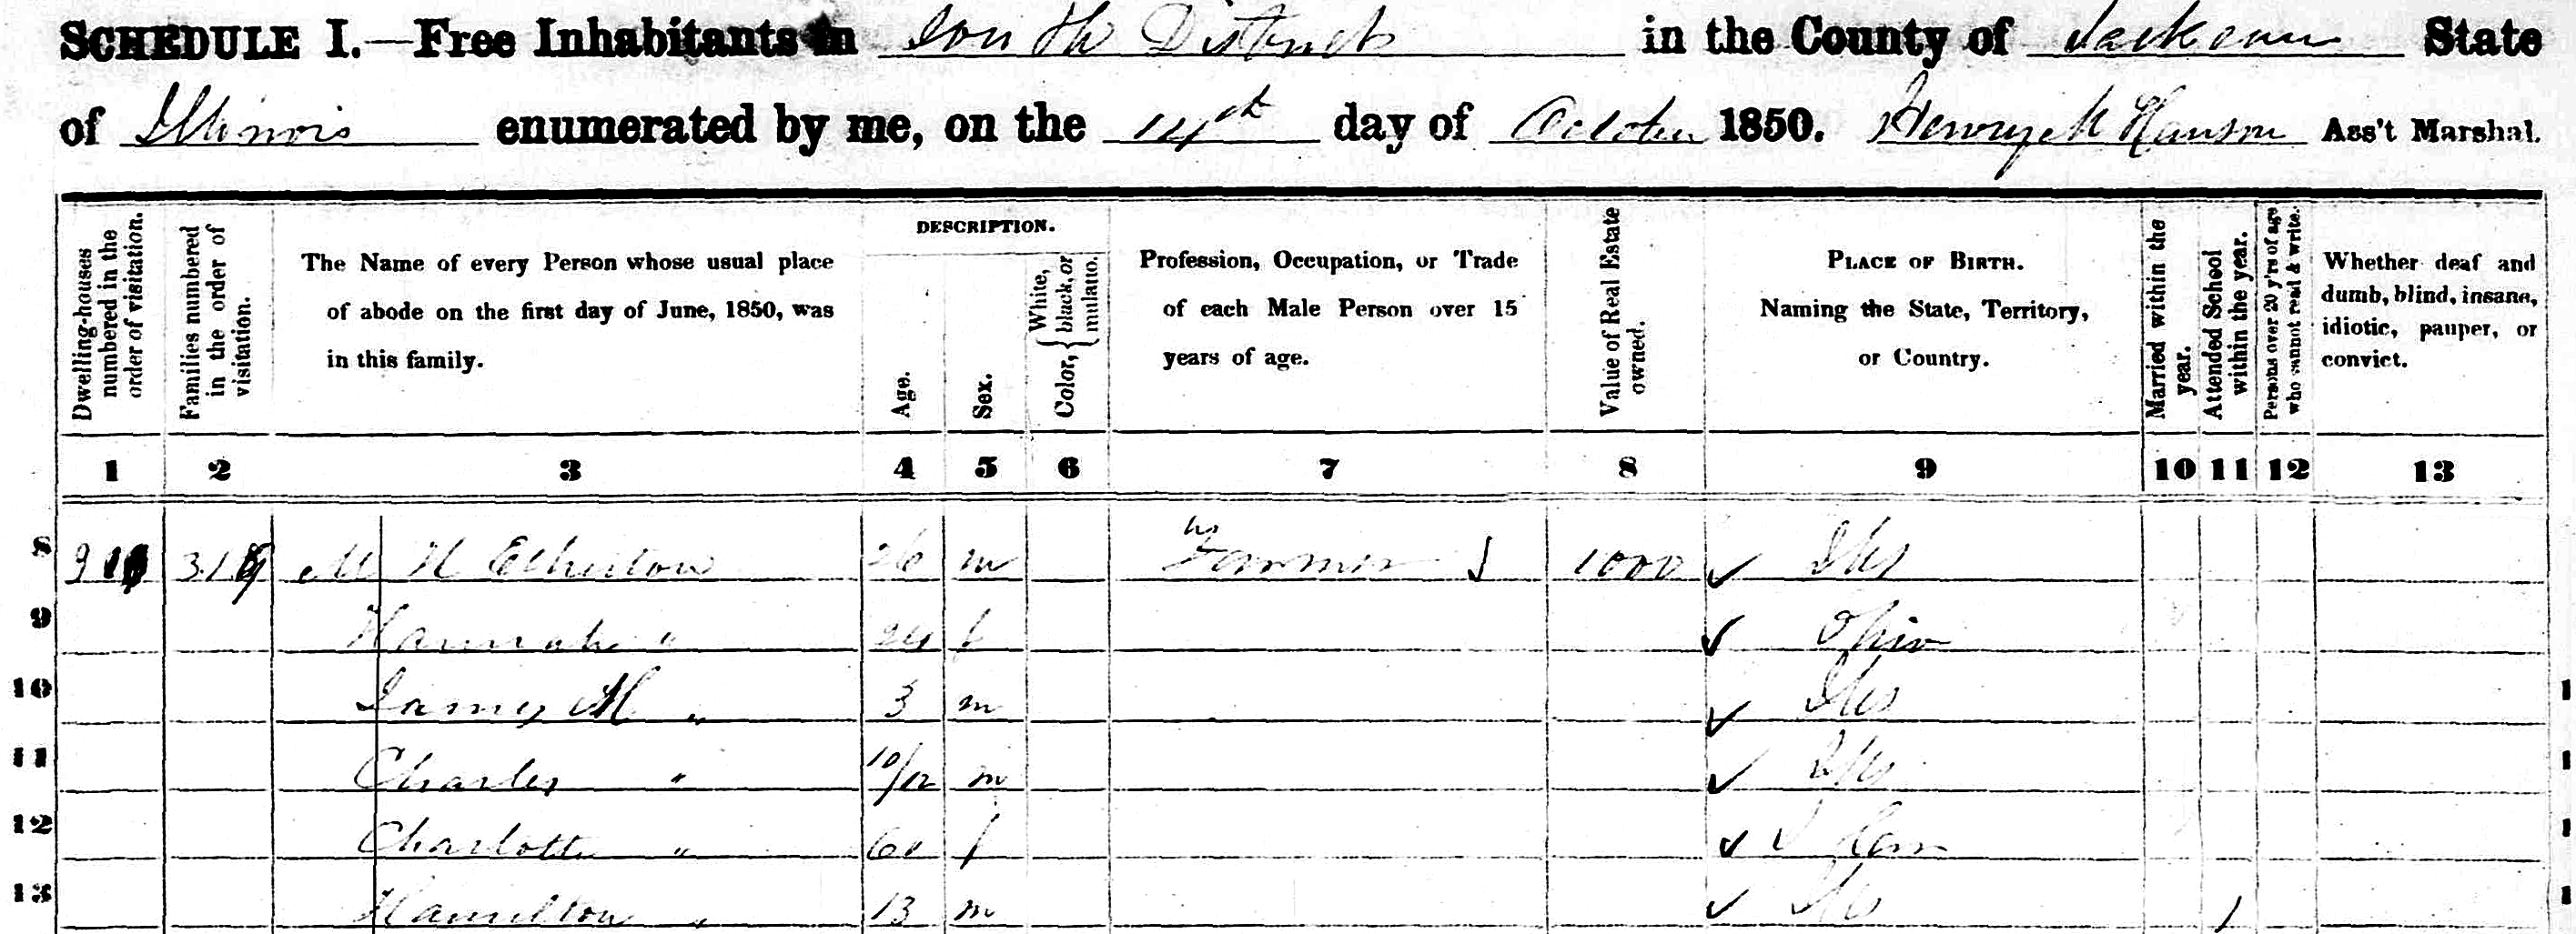 SCHEDULE I.—Free Inhabitants in South District in the County of Jackson State
of Illinois enumerated by me, on the 14th day of October 1850. Henry M Hanson Ass't Marshal.
Dwelling-houses numbered in the order of visitation.
Families numbered in the order of visitation.
The Name of every Person whose usual place
of abode on the first day of June, 1850, was
in this family.
DESCRIPTION.
Age.
Sex.
Color, { White, black, or mulatto.
Profession, Occupation, or Trade
of each Male Person over 15
years of age.
Value of Real Estate owned.
PLACE OF BIRTH.
Naming the State, Territory,
or Country.
Married within the year.
Attended School within the year.
Persons over 20 y'rs of age who cannot read & write.
Whether deaf and
dumb, blind, insane,
idiotic, pauper, or
convict.
1 2 3 4 5 6 7 8 9 10 11 12 13
8 M H Etherton 26 m Farmer 1000 ✓ Ills
9 Hannah " 24 f ✓ Ohio
10 James M " 3 m ✓ Ills
11 Charles " 10/12 m ✓ Ills
12 Charlotte " f ✓
13 Hamilton " 13 m ✓ Ills 1